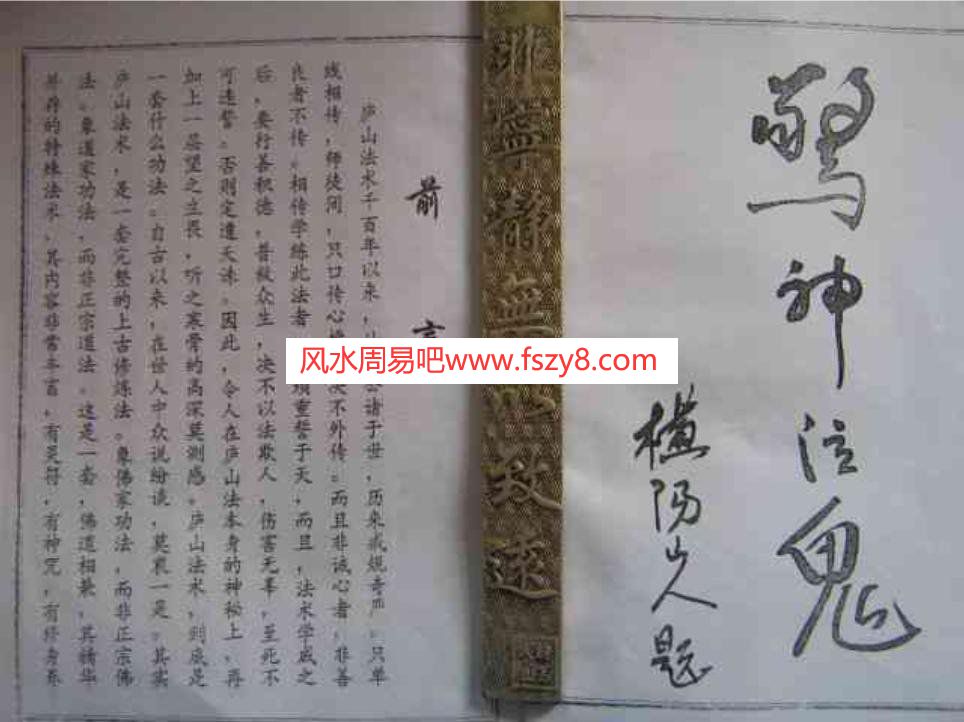 驚神泣鬼
阳山人题
非寧靜無以致遠
前言
庐山法术千百年以来，公诸于世，历来戒规奇严。只单
线相传，师徒间，只口传心决不外传。而且非诚心者，非善
良者不传。相传学练此法者须重誓于天，而且，法术学成之
后，要行善积德，普救众生，决不以法欺人，伤害无辜，至死不
可违誓。否则定遭天诛。因此，令人在庐山法本身的神秘上，再
加上一层望之生畏，听之寒骨的高深莫测感。庐山法术，到底是
一套什么功法。自古以来，在世人中众说纷谈，莫衷一是。其实
庐山法术，是一套完整的上古修炼法。象佛家功法，而非正宗佛
法。象道家功法，而非正宗道法。这是一套，佛道相兼，其精华
并存的特殊法术，其内容非常丰富，有灵符，有神咒，有修身养
风水周易吧www.fszy8.com